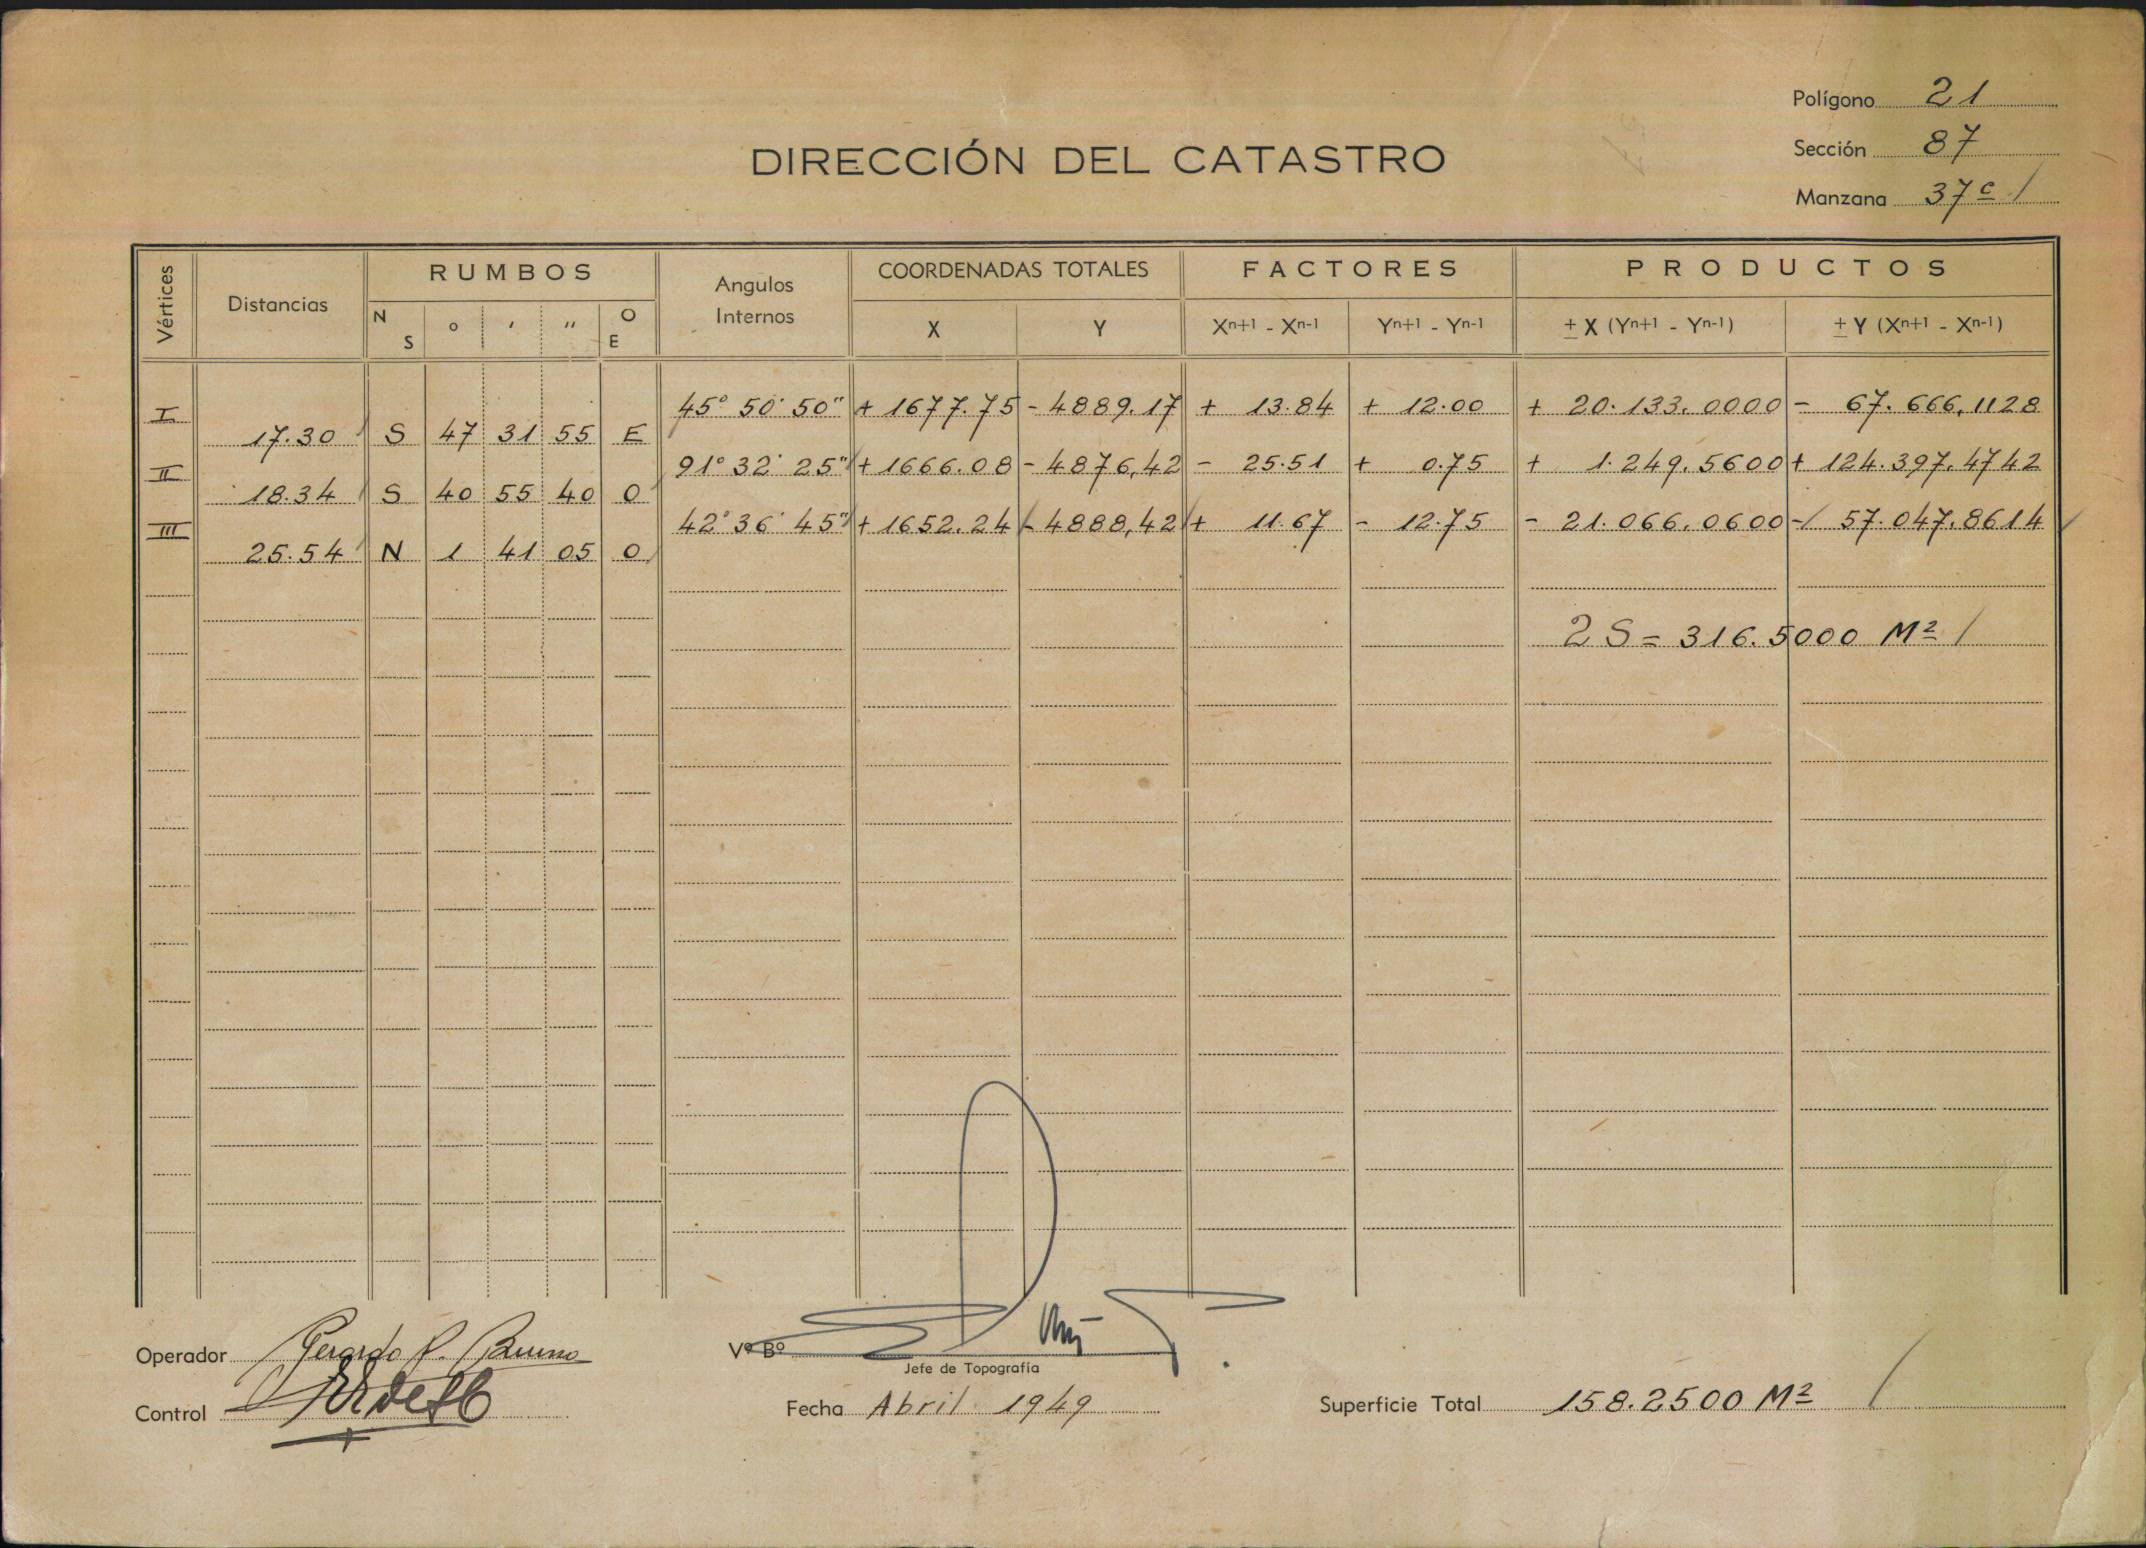 Polígono 21
DIRECCIÓN DEL CATASTRO
Sección 87
Manzana 37c
Vértices Distancias RUMBOS Angulos Internos COORDENADAS TOTALES FACTORES PRODUCTOS
N S ° ' " O E X Y Xn+1 - Xn-1 Yn+1 - Yn-1 ± X (Yn+1 - Yn-1) ± Y (Xn+1 - Xn-1)
I 45° 50' 50" + 1677.75 - 4889.17 + 13.84 + 12.00 + 20.133.0000 - 67.666,1128
17.30 S 47 31 55 E
II 91° 32' 25" + 1666.08 - 4876,42 - 25.51 + 0.75 + 1.249.5600 + 124.397.4742
18.34 S 40 55 40 O
III 42° 36' 45" + 1652.24 - 4888,42 + 11.67 - 12.75 - 21.066.0600 - 57.047.8614
25.54 N 1 41 05 O
2 S = 316.5000 M²
Operador Gerardo P. Bruno
Vº Bº
Jefe de Topografía
Control
Fecha Abril 1949
Superficie Total 158.2500 M²